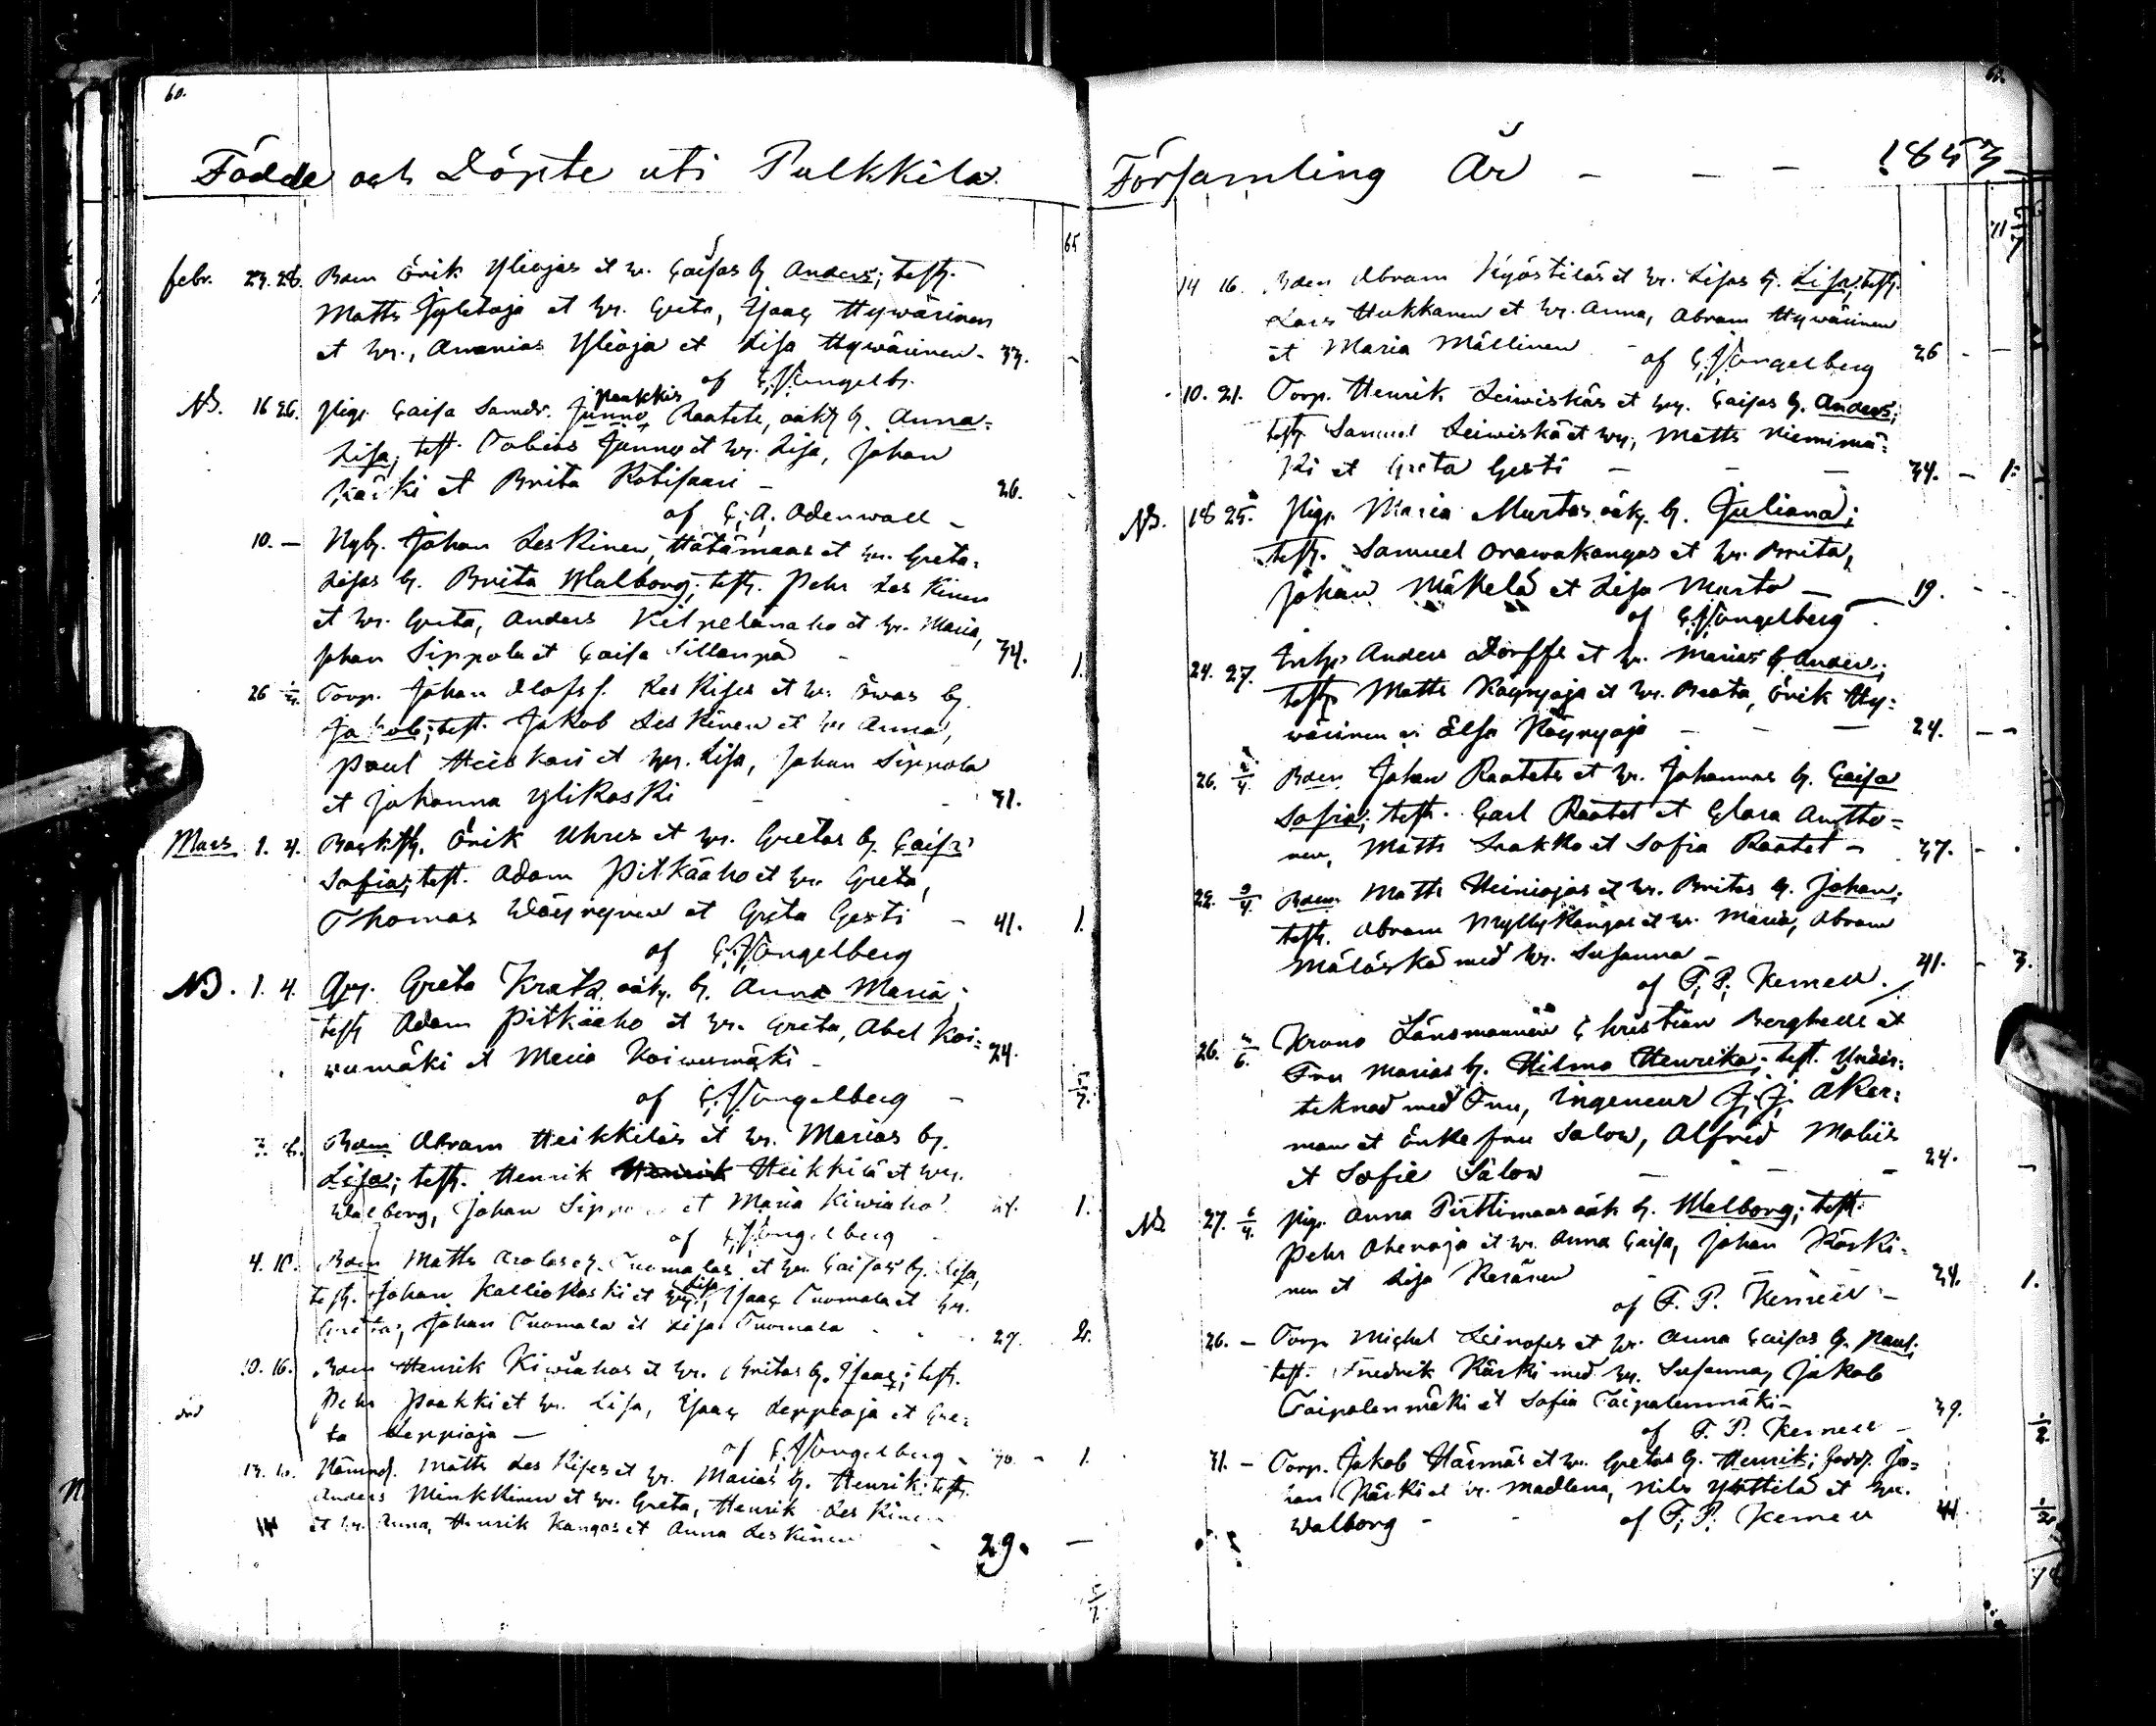 60.
Födde och Döpte uti Pulkkila
65
febr. 23. 28. Bden Erik Yliojas et hr. Caisas b. Anders; test.
Matts Jyletoja et hr. Greta, Isaac Hywärinen
et hr., Ananias Ylioja et Lisa Hywärinen - 33.
af C. J. Engelb.
NB. 16 26. Pig. Caisa Samdr. Junno Raatete, oäkt b. Anna-
Paakkis
Lisa; test. Tobias Junno et hr. Lisa, Johan
Kärki et Brita Kotisaari - 26.
af C. A. Odenwall -
10. - Nyb. Johan Leskinen, Hätämaas et hr. Greta
Lisas b. Brita Walborg; test. Pehr Leskinen
et hr. Greta, Anders Kilpelänaho et hr. Maria,
Johan Sippola et Caisa Sillanpä - 34. 1.
26 1/3. Torp. Johan Olofss. Leskises et hr. Ewas b.
Jakob; test. Jakob Leskinen et hr Anna,
Paul Heiskari et hr. Lisa, Johan Sippola
et Johanna Ylikoski - 31.
Mars 1. 4. Backst. Erik Uhres et hr. Gretas b. Caisa
Sofia; test. Adam Pitkäaho et hr. Greta,
Thomas Wäyrynen et Greta Gesti - 41. 1.
af C. J. Engelberg
NB. 1. 4. Greta Krats oäkt. b. Anna Maria;
test Adam Pitkäaho et hr. Greta, Abel Koi-
wumäki et Maria Koiwumäki - 24.
af C. J. Engelberg -
3. 6. Bden Abram Heikkiläs et hr. Marias b.
Lisa; test. Henrik Heikkilä et hr.
Walborg, Johan Sippola et Maria Kiwiaho 1.
af C. J. Engelberg
4. 10. Bden Matts Tuomalas et hr. Caisas b. Lisa,
test. Johan Kalliokoski et hr. Lisa, Isaac Tuomala et hr.
Gretas, Johan Tuomala et Lisa Tuomala - 29. 2.
10. 16. Bden Henrik Kiwiahos et hr. Britas b. Isaac; test.
Pehr Paakki et hr. Lisa, Isaac Leppioja et Gre-
ta Leppioja -
af C. J. Engelberg - 30. - 1.
Nämnd. Matts Leskises et hr. Marias b. Henrik; test.
Anders Minkkinen et hr. Greta, Henrik Leskinen
et hr. Anna, Henrik Kangas et Anna Leskinen - 29. -
Församling År - - - 1853
14 16. Bden Abram Kyöstiläs et hr. Lisas b. Lisa; test.
Lars Hukkanen et hr. Anna, Abram Hywärinen
et Maria Mällinen - af C. J. Engelberg 26 - -
10. 21. Torp. Henrik Leiwiskäs et hr. Caisas b. Anders;
test. Samuel Leiwiskä et hr., Matts Niemimä-
ki et Greta Gesti - - - 34. - 1.
NB. 18 25. Pig. Maria Murtos oäk. b. Juliana;
test. Samuel Orawakangas et hr. Brita,
Johan Mäkelä et Lisa Murto - 19. - -
af C. J. Engelberg
24. 27. Anders Dorffs et hr. Marias b. Anders;
test. Matts Käyryoja et hr. Beata, Erik Hy-
wärinen et Elsa Käyryoja - - - 24. - -
26. 2/4. Bden Johan Raatets et hr. Johannas b. Caisa
Sofia; test. Carl Raatet et Clara Antto-
nen, Matts Laakko et Sofia Raatet - 37. - .
29. 3/4. Bden Matts Heiniojas et hr. Britas b. Johan;
test. Abram Myllykangas et hr. Maria, Abram
Määskä med hr. Susanna - 41. - 3.
af F. P. Kemell.
26. Krono Länsmannen Christian Berghälls et
Fru Marias b. Hilma Henrika; test. Under-
teknad med Fru, Ingeneur J. J. Åker-
man et Enkefru Salow, Alfred Malus
et Sofie Salow - - - 24. -
NB 27. 6/4. Pig. Anna Pirttimaas oäk b. Walborg; test.
Pehr Ahenoja et hr. Anna Caisa, Johan Kärki-
nen et Lisa Keränen - 34. 1.
af F. P. Kemell -
26. - Torp Michel Leinoses et hr. Anna Caisas b. Paul;
test. Fredrik Kärki med hr. Susanna, Jakob
Taipalenmäki et Sofia Taipalenmäki - 39.
af F. P. Kemell -
31. - Torp. Jakob Härmäs et hr. Gretas b. Henrik; Jo-
han Kärki et hr. Madlena, Nils Yrttilä et hr.
Walborg - - af F. P. Kemell 44.